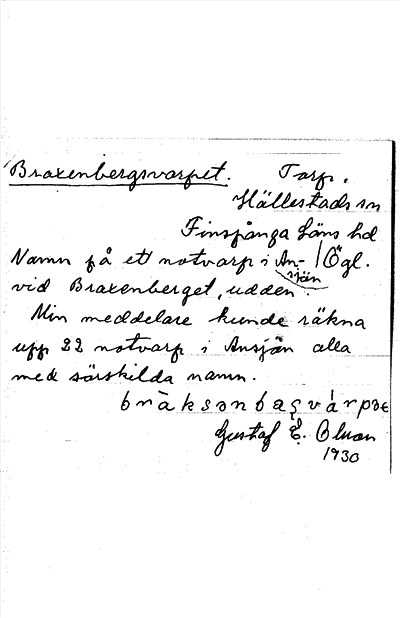 Braxenbergsvarpet. Torp.
Hällestads sn
Finspånga Läns hd
Namn på ett notvarp i An- Ögl.
sjön
vid Braxenberget, udden
Min meddelare kunde räkna
upp 22 notvarp i Ansjön alla
med särskilda namn.
Gustaf E. Olson
1930